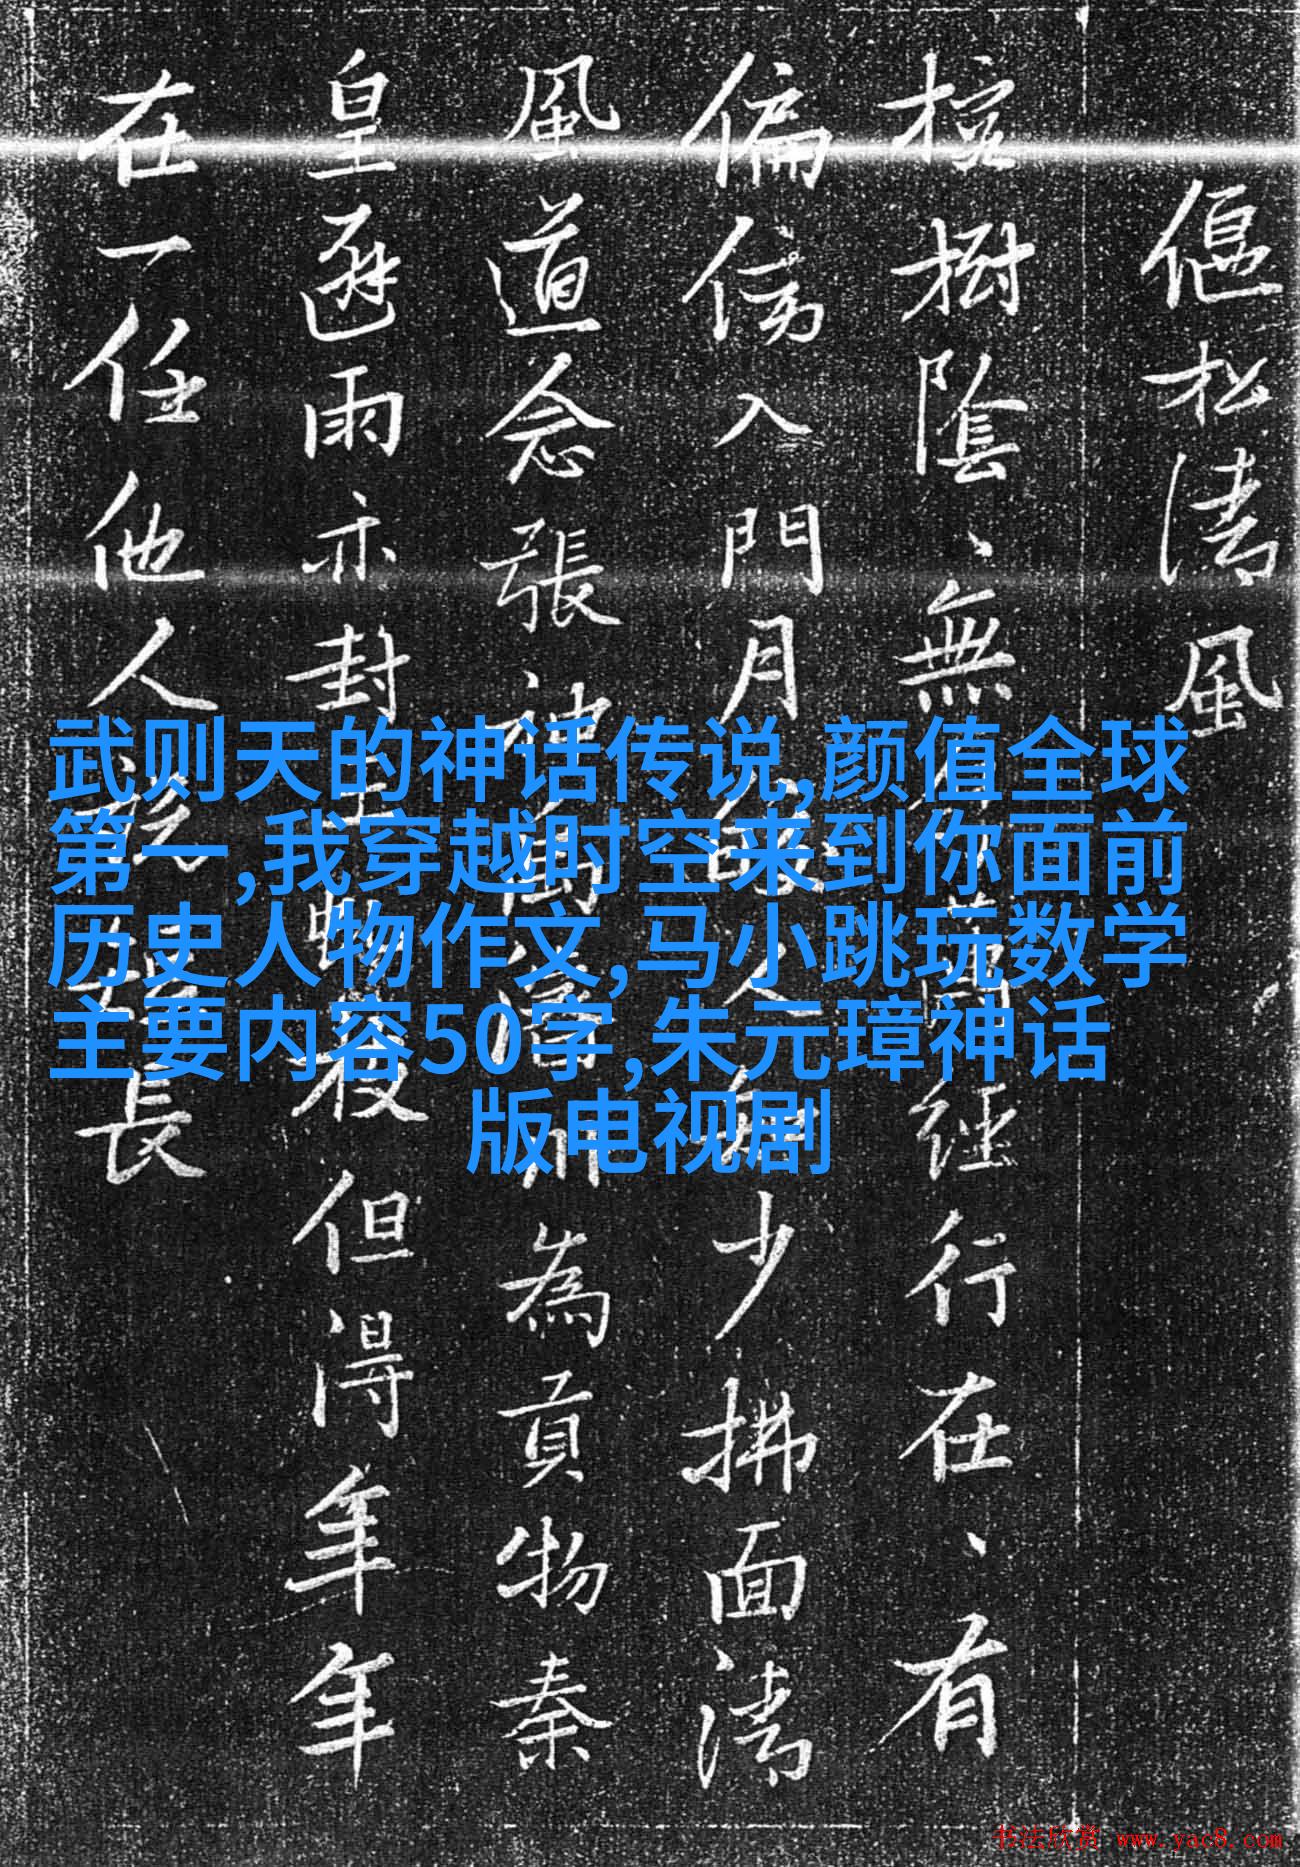 偃松清風
樹陰、無經行在、有
偏傍入門月人少拂面清
風道念張神為貢物秦
皇避雨亦封但得年年
在一任他人長
武则天的神话传说,颜值全球
第一,我穿越时空来到你面前
历史人物作文,马小跳玩数学
主要内容50字,朱元璋神话
版电视剧
书法欣赏 www.yac8.com